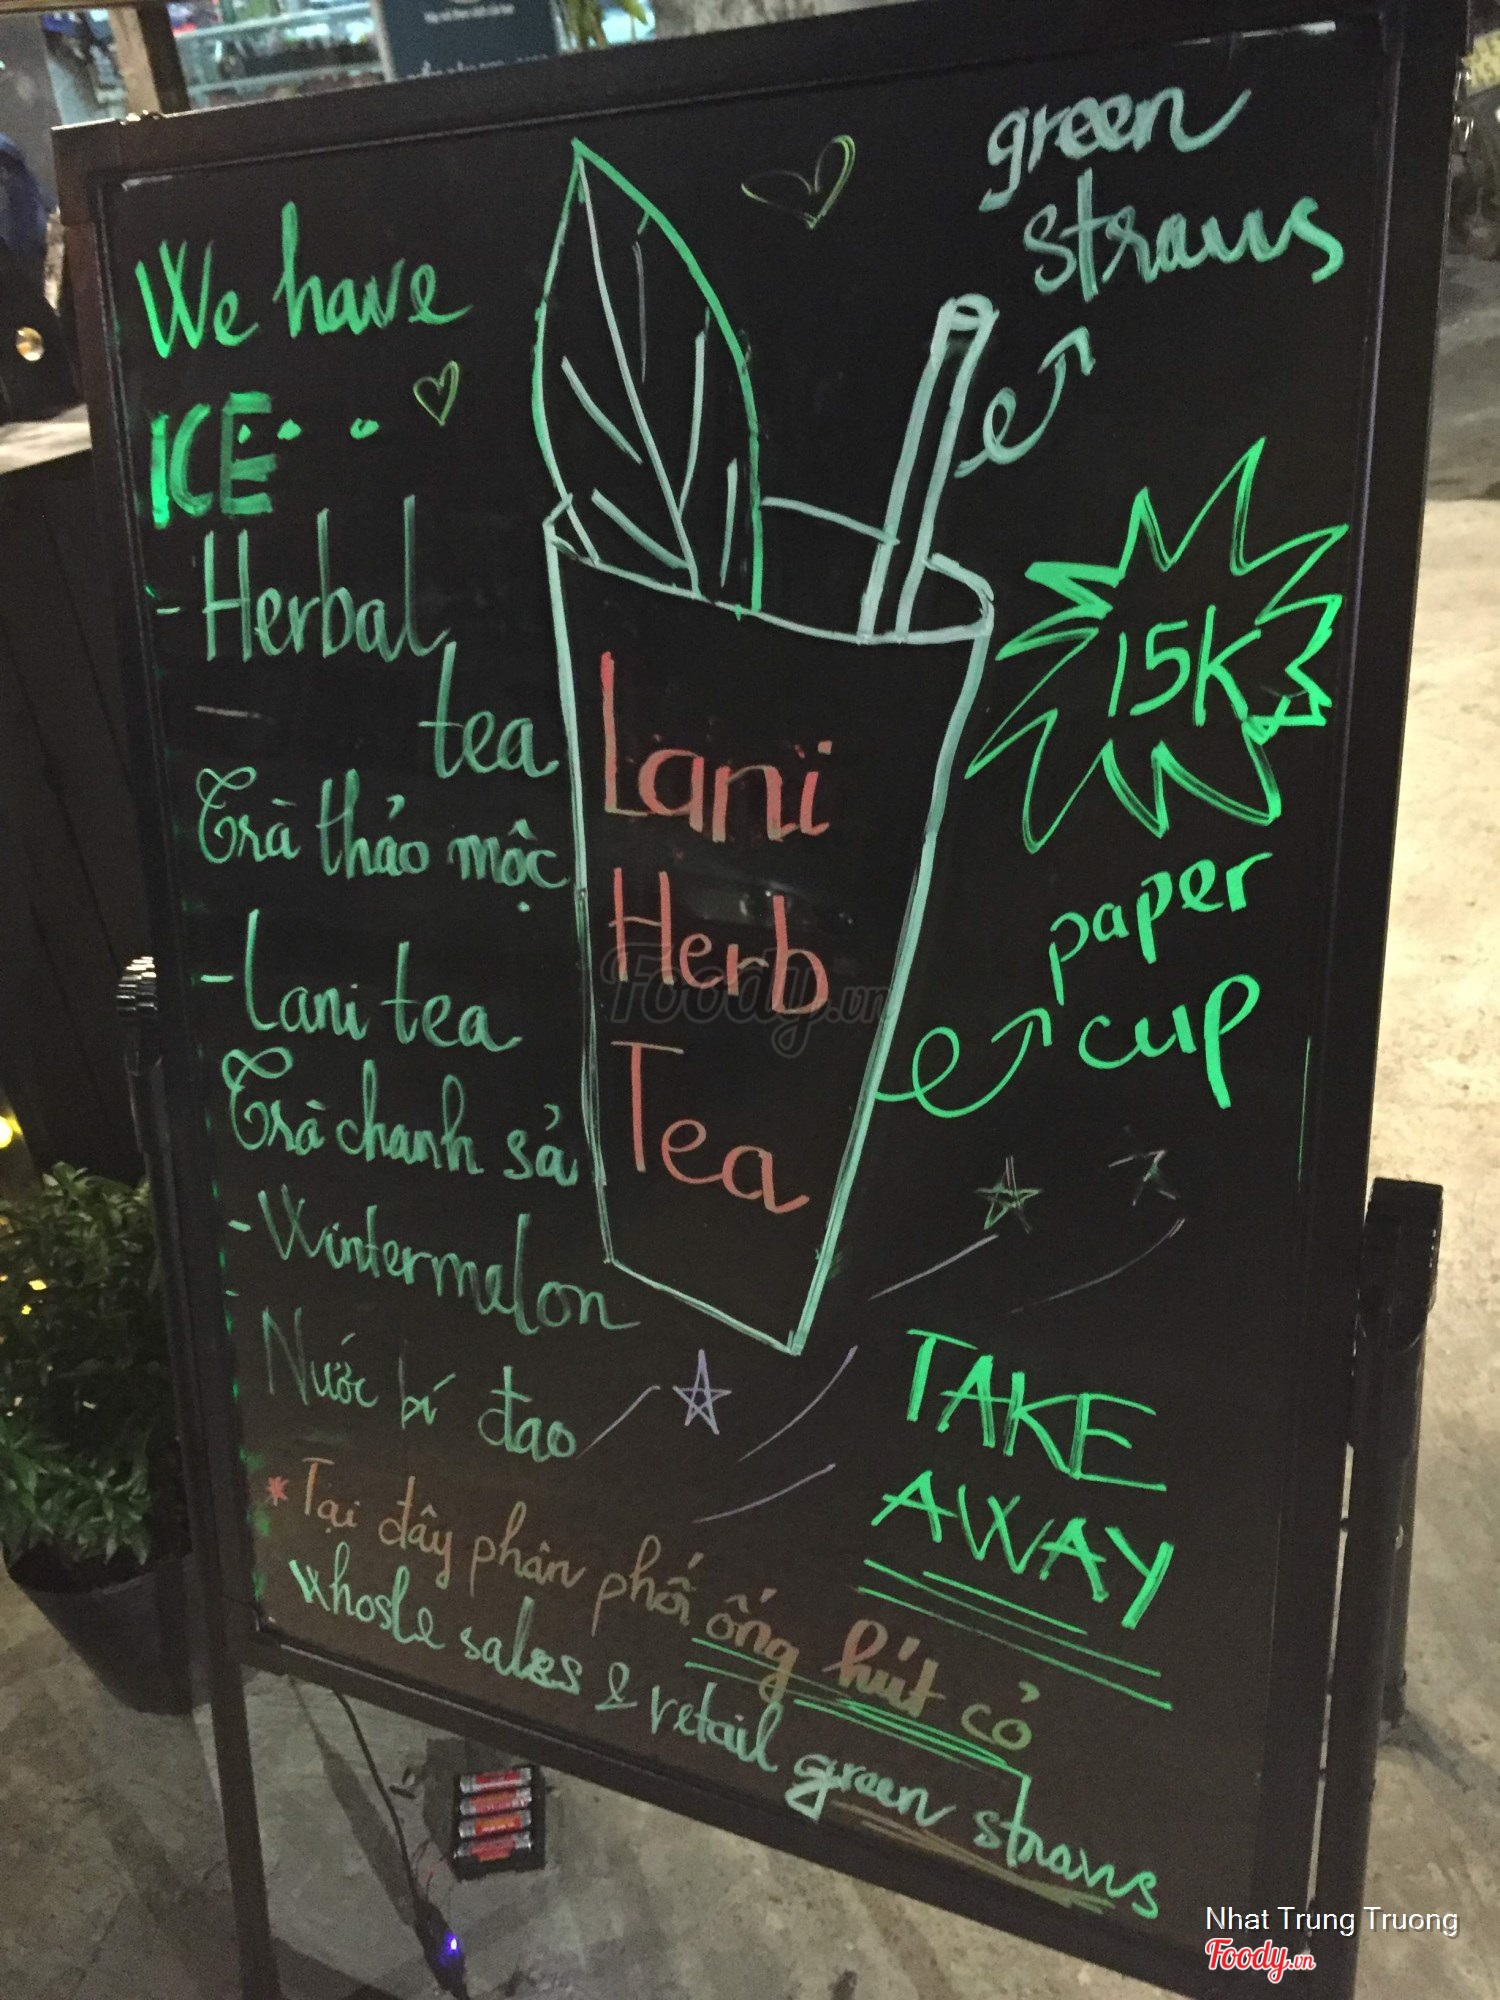 We have
ICE...
- Herbal
tea
Trà thảo mộc
- Lani tea
Trà chanh sả
- Wintermelon
Nước bí đao
* Tại đây phân phối ống hút cỏ
whosle sales & retail green straws
Lani
Herb
Tea
green
straws
15K
paper
cup
TAKE
AWAY
Foody.vn
Nhat Trung Truong
Foody.vn